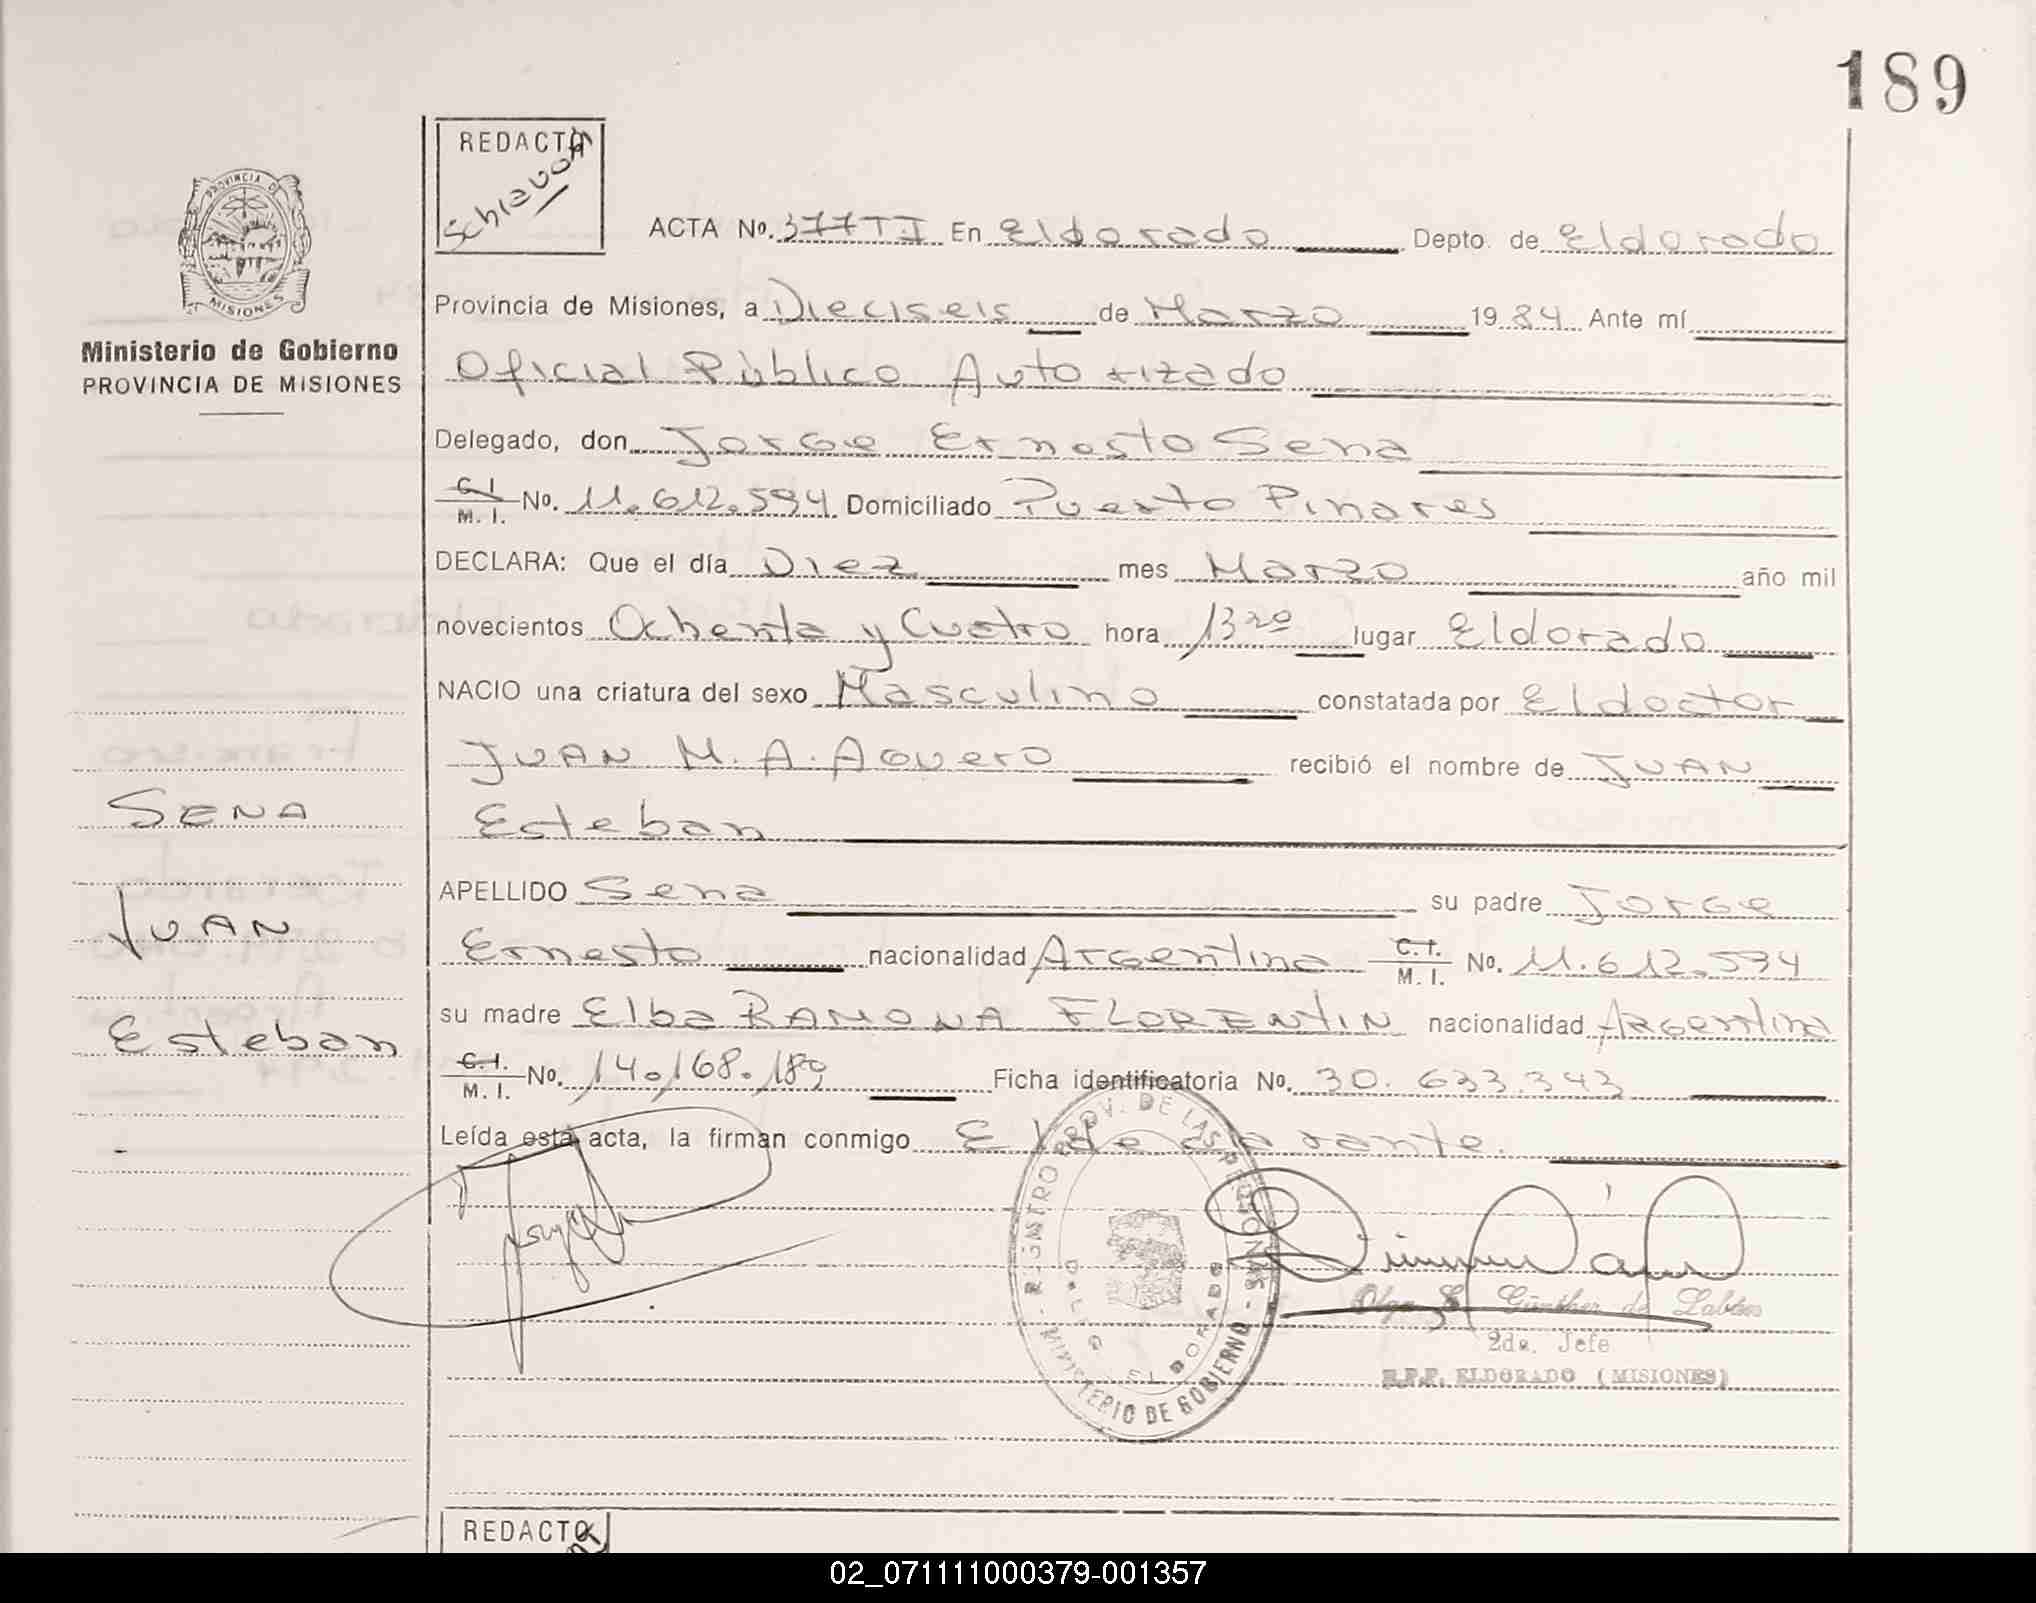 189
REDACTO
Schiavoni
PROVINCIA DE
MISIONES
Ministerio de Gobierno
PROVINCIA DE MISIONES
ACTA No. 377TI En Eldorado Depto. de Eldorado
Provincia de Misiones, a Dieciseis de Marzo 1984 Ante mí
Oficial Público Autorizado
Delegado, don Jorge Ernesto Sena
C.I. M.I. No. 11.612.594 Domiciliado Puerto Pinares
DECLARA: Que el día Diez mes Marzo año mil
novecientos Ochenta y Cuatro hora 13 20 lugar Eldorado
NACIO una criatura del sexo Masculino constatada por El doctor
JUAN M. A. Aguero recibió el nombre de JUAN
Esteban
APELLIDO Sena su padre Jorge
Ernesto nacionalidad Argentina C.I. M.I. No. 11.612.594
su madre Elba RAMONA FLORENTIN nacionalidad Argentina
C.I. M.I. No. 14.168.189 Ficha identificatoria No. 30.633.343
Leída esta acta, la firman conmigo El declarante.
SENA
JUAN
Esteban
REGISTRO PROV. DE LAS PERSONAS
MINISTERIO DE GOBIERNO
DELEG. ELDORADO
Olga S. Günther de
2da. Jefe
ELDORADO (MISIONES)
REDACTO
02_071111000379-001357